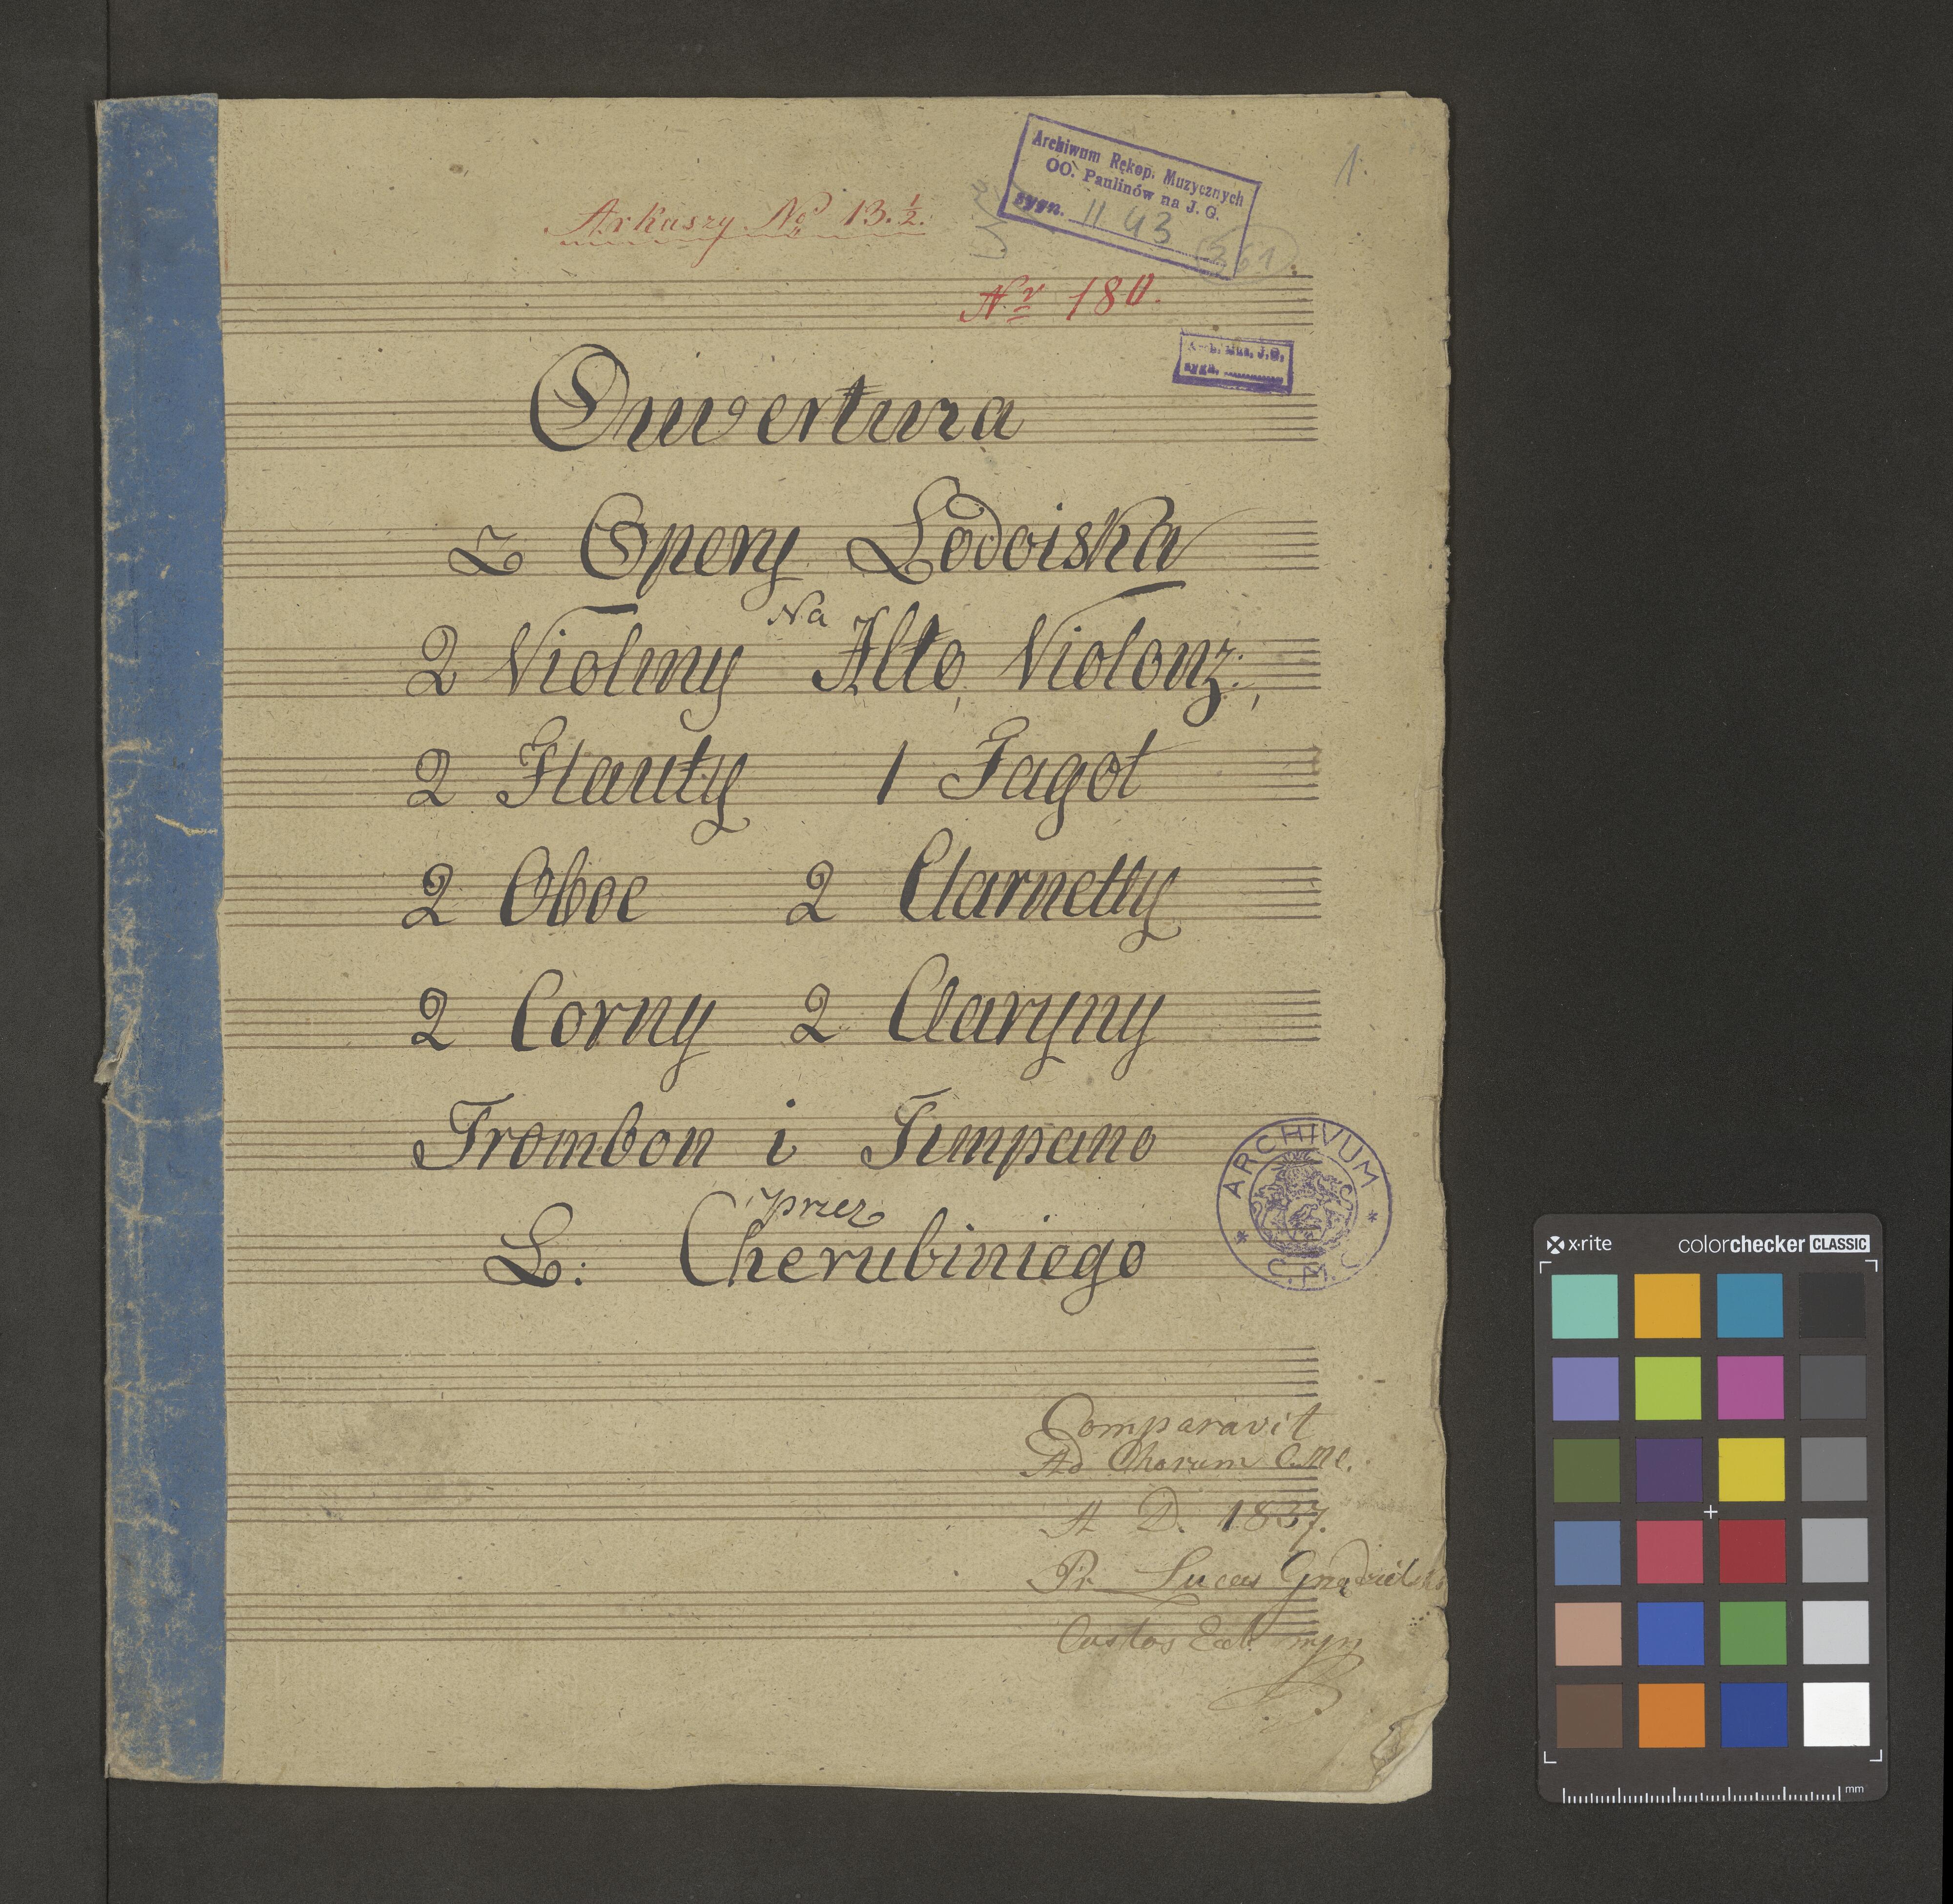 1.
Archiwum Rękop. Muzycznych
OO. Paulinów na J. G.
sygn. II 43
(361)
Arkuszy No 13.½.
Nr 180.
sygn.
Ouvertura
z Opery Lodoiska
Na
2 Violiny Alto, Violonz:,
2 Flauty 1 Fagot
2 Oboe 2 Clarnetty
2 Corny 2 Claryny
Trombon i Timpano
przez
L: Cherubiniego
ARCHIVUM
C.M.
Comparavit
Ad Chorum C.M.
A D. 1837.
Pr Lucas
Custos Eccl. mpp
x-rite colorchecker CLASSIC
mm